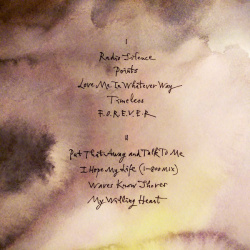 1
Radio Silence
Points
Love Me In Whatever Way
Timeless
F.O.R.E.V.E.R
Put That Away and Talk To Me
I Hope My Life (1-800 mix)
Waves Know Shores
My Willing Heart